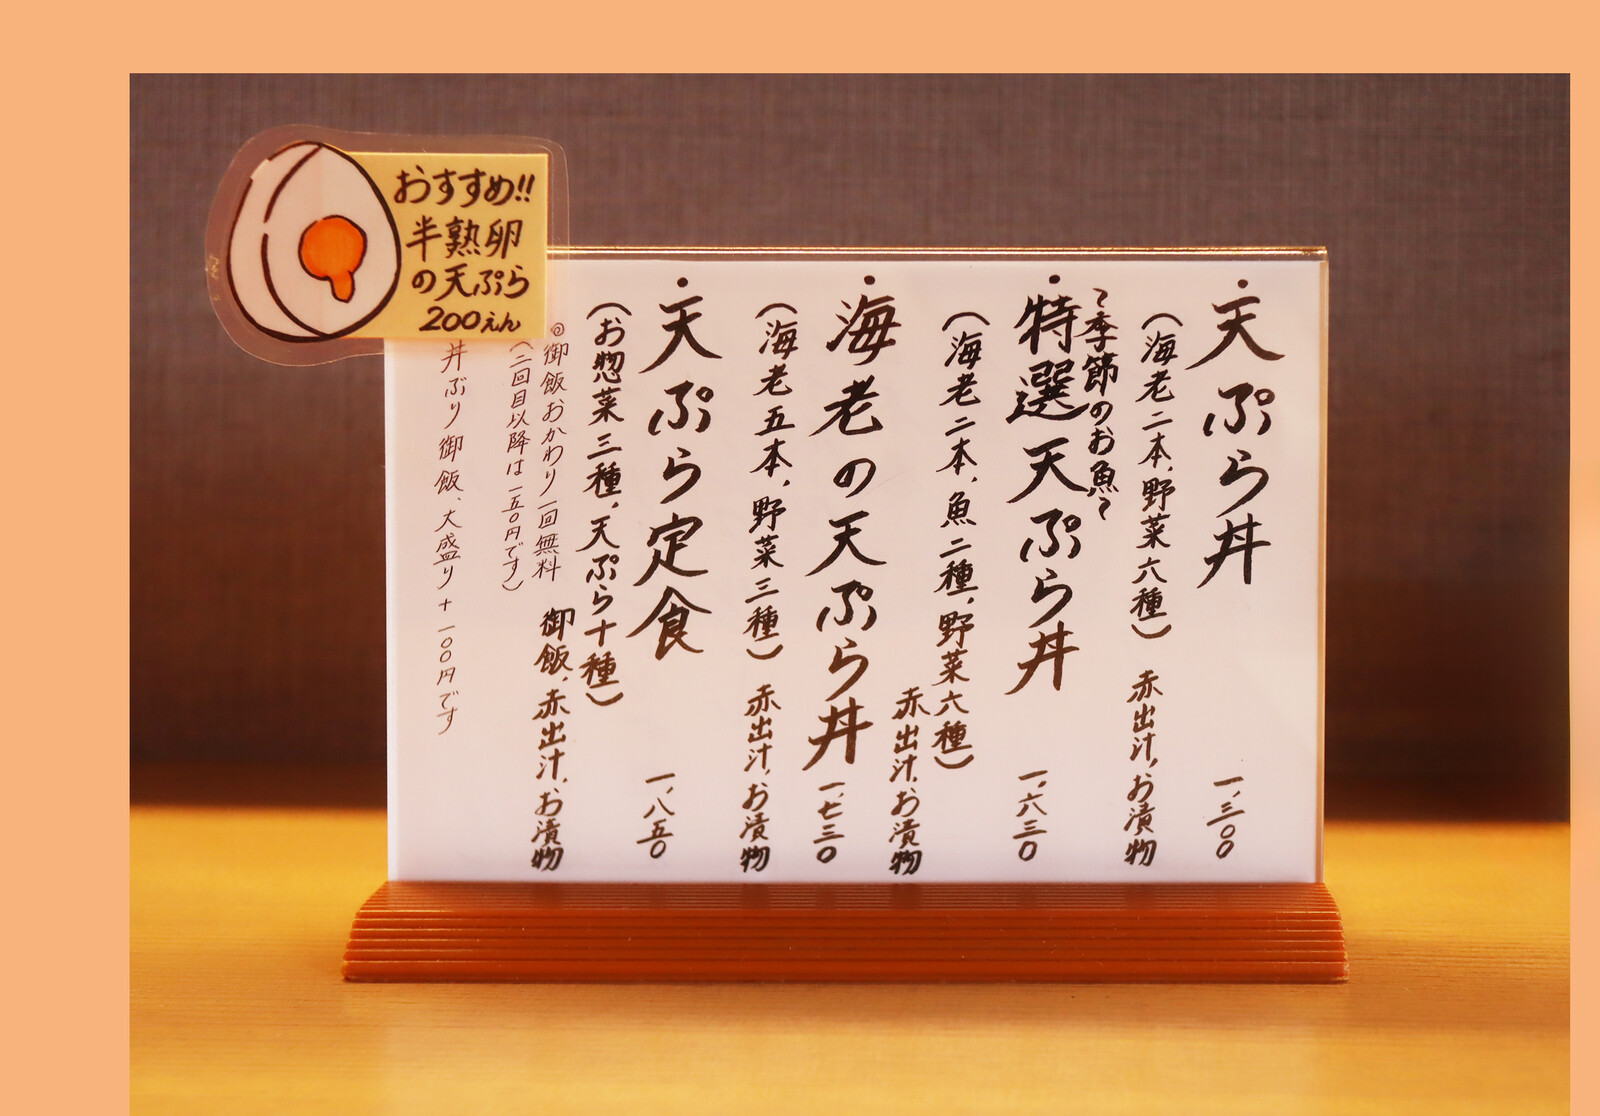 おすすめ!!
半熟卵
の天ぷら
200えん
・天ぷら丼 一、三〇〇
(海老二本、野菜六種) 赤出汁、お漬物
~季節のお魚~
・特選天ぷら丼 一、六三〇
(海老二本、魚二種、野菜六種)
赤出汁、お漬物
・海老の天ぷら丼 一、七三〇
(海老五本、野菜三種) 赤出汁、お漬物
・天ぷら定食 一、八五〇
(お惣菜三種、天ぷら十種)
御飯、赤出汁、お漬物
◎御飯おかわり一回無料
(二回目以降は一五〇円です)
丼ぶり御飯、大盛り+一〇〇円です